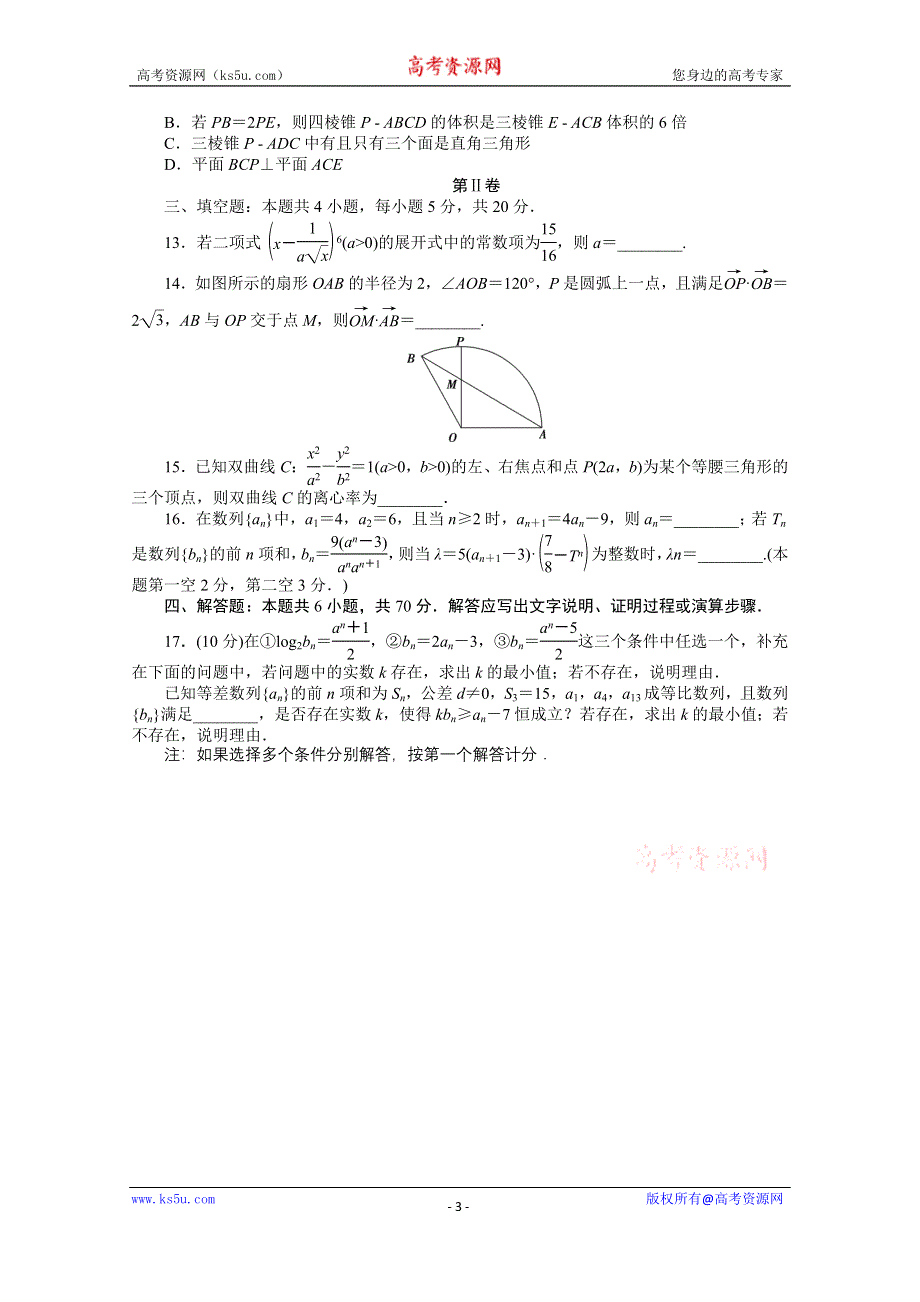 高考资源网（ks5u.com）
高考资源网
您身边的高考专家
B．若 PB＝2PE，则四棱锥 P - ABCD 的体积是三棱锥 E - ACB 体积的 6 倍
C．三棱锥 P - ADC 中有且只有三个面是直角三角形
D．平面 BCP⊥平面 ACE
第Ⅱ卷
三、填空题：本题共 4 小题，每小题 5 分，共 20 分．
13．若二项式 (x－1/(a√x))⁶(a>0)的展开式中的常数项为15/16，则 a＝________.
14．如图所示的扇形 OAB 的半径为 2，∠AOB＝120°，P 是圆弧上一点，且满足OP→·OB→＝
2√3，AB 与 OP 交于点 M，则OM→·AB→＝________.
P
B
M
O
A
15．已知双曲线 C：x²/a²－y²/b²＝1(a>0，b>0)的左、右焦点和点 P(2a，b)为某个等腰三角形的
三个顶点，则双曲线 C 的离心率为________．
16．在数列{aₙ}中，a₁＝4，a₂＝6，且当 n≥2 时，aₙ₊₁＝4aₙ－9，则 aₙ＝________；若 Tₙ
是数列{bₙ}的前 n 项和，bₙ＝9(aⁿ－3)/(aⁿaⁿ⁺¹)，则当 λ＝5(aₙ₊₁－3)·(7/8－Tⁿ)为整数时，λn＝________.(本
题第一空 2 分，第二空 3 分．)
四、解答题：本题共 6 小题，共 70 分．解答应写出文字说明、证明过程或演算步骤．
17．(10 分)在①log₂bₙ＝(aⁿ＋1)/2，②bₙ＝2aₙ－3，③bₙ＝(aⁿ－5)/2这三个条件中任选一个，补充
在下面的问题中，若问题中的实数 k 存在，求出 k 的最小值；若不存在，说明理由．
已知等差数列{aₙ}的前 n 项和为 Sₙ，公差 d≠0，S₃＝15，a₁，a₄，a₁₃成等比数列，且数列
{bₙ}满足________，是否存在实数 k，使得 kbₙ≥aₙ－7 恒成立？若存在，求出 k 的最小值；若
不存在，说明理由．
注：如果选择多个条件分别解答，按第一个解答计分．
高考资源网
www.ks5u.com
- 3 -
版权所有@高考资源网